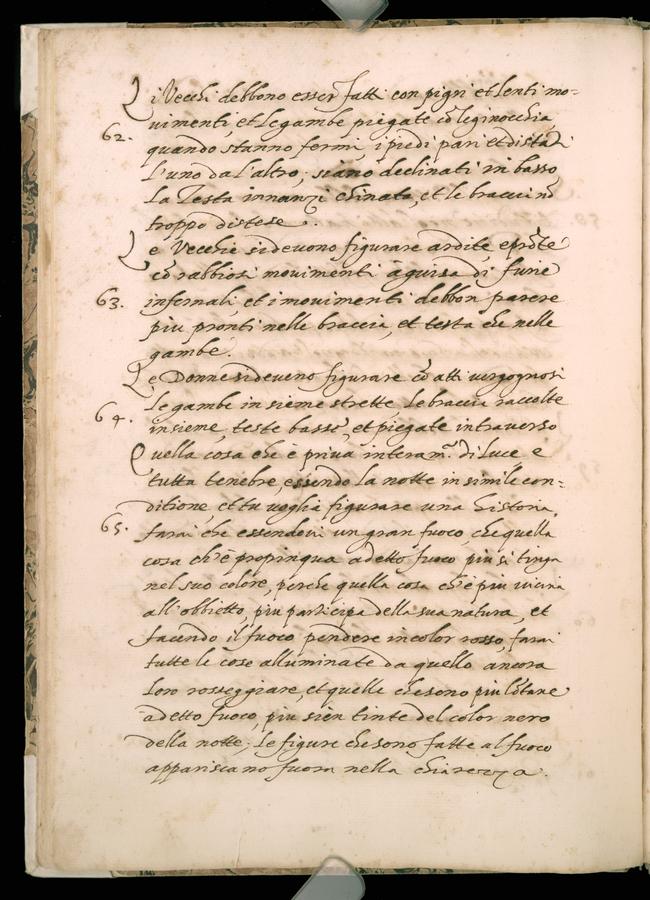 Li Vecchi debbono esser fatti con pigri et lenti mo=
62. vimenti, et le gambe piegate cō le ginocchia
quando stanno fermi, i piedi pari et distāti
l'uno da l'altro, siano declinati in basso
la Testa innanzi chinata, et le braccia nō
troppo distese.
Le Vecchie si devono figurare ardite, e prōte
cō rabbiosi movimenti à guisa di furie
63. infernali, et i movimenti debbon parere
piu pronti nelle braccia, et testa che nelle
gambe.
Le Donne si deveno figurare cō atti vergognosi
le gambe insieme strette, le braccia raccolte
64. insieme, teste basse, et piegate in traverso
Quella cosa che è priva interam.e di luce e
tutta tenebre, essendo la notte in simile con=
ditione, et tu voglia figurare una historia,
65. farai che essendovi un gran fuoco che quella
cosa ch'è propinqua a detto fuoco piu si tinga
nel suo colore, perche quella cosa ch'è piu vicina
all'obbietto, piu participa della sua natura, et
facendo il fuoco pendere in color rosso, farai
tutte le cose alluminate da quello ancora
loro rosseggiare, et quelle che sono piu lōtane
a detto fuoco, piu sien tinte del color nero
della notte; le figure che sono fatte al fuoco
apparisca no fuora nella chiarezza.